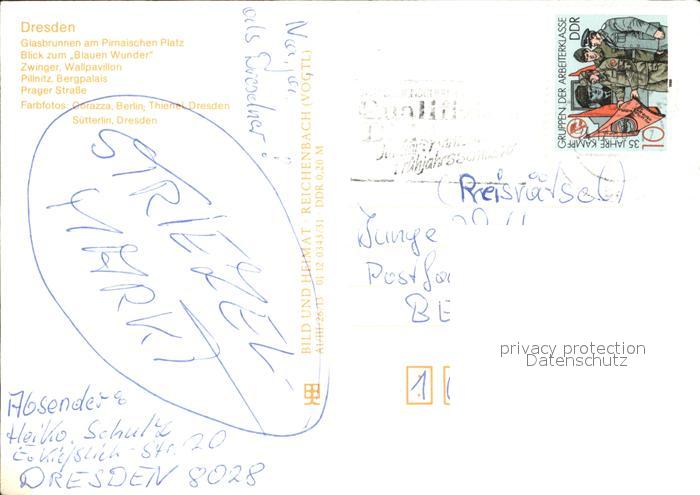 Dresden
Glasbrunnen am Pirnaischen Platz
Blick zum „Blauen Wunder"
Zwinger, Wallpavillon
Pillnitz, Bergpalais
Prager Straße
Farbfotos: Corazza, Berlin; Thienel, Dresden
Sütterlin, Dresden
Na, ja
als Dresdner!
STRIEZEL-
MARKT
Absender:
Heiko Schulz
Str. 20
DRESDEN 8028
BILD UND HEIMAT REICHENBACH (VOGTL)
A1/III/26/13 01 12 0343/31 DDR 0,20 M
GRUPPEN DER ARBEITERKLASSE
DDR
35 JAHRE KAMPF
10
(Preisrätsel)
Junge
Postfa
BE
1
privacy protection
Datenschutz